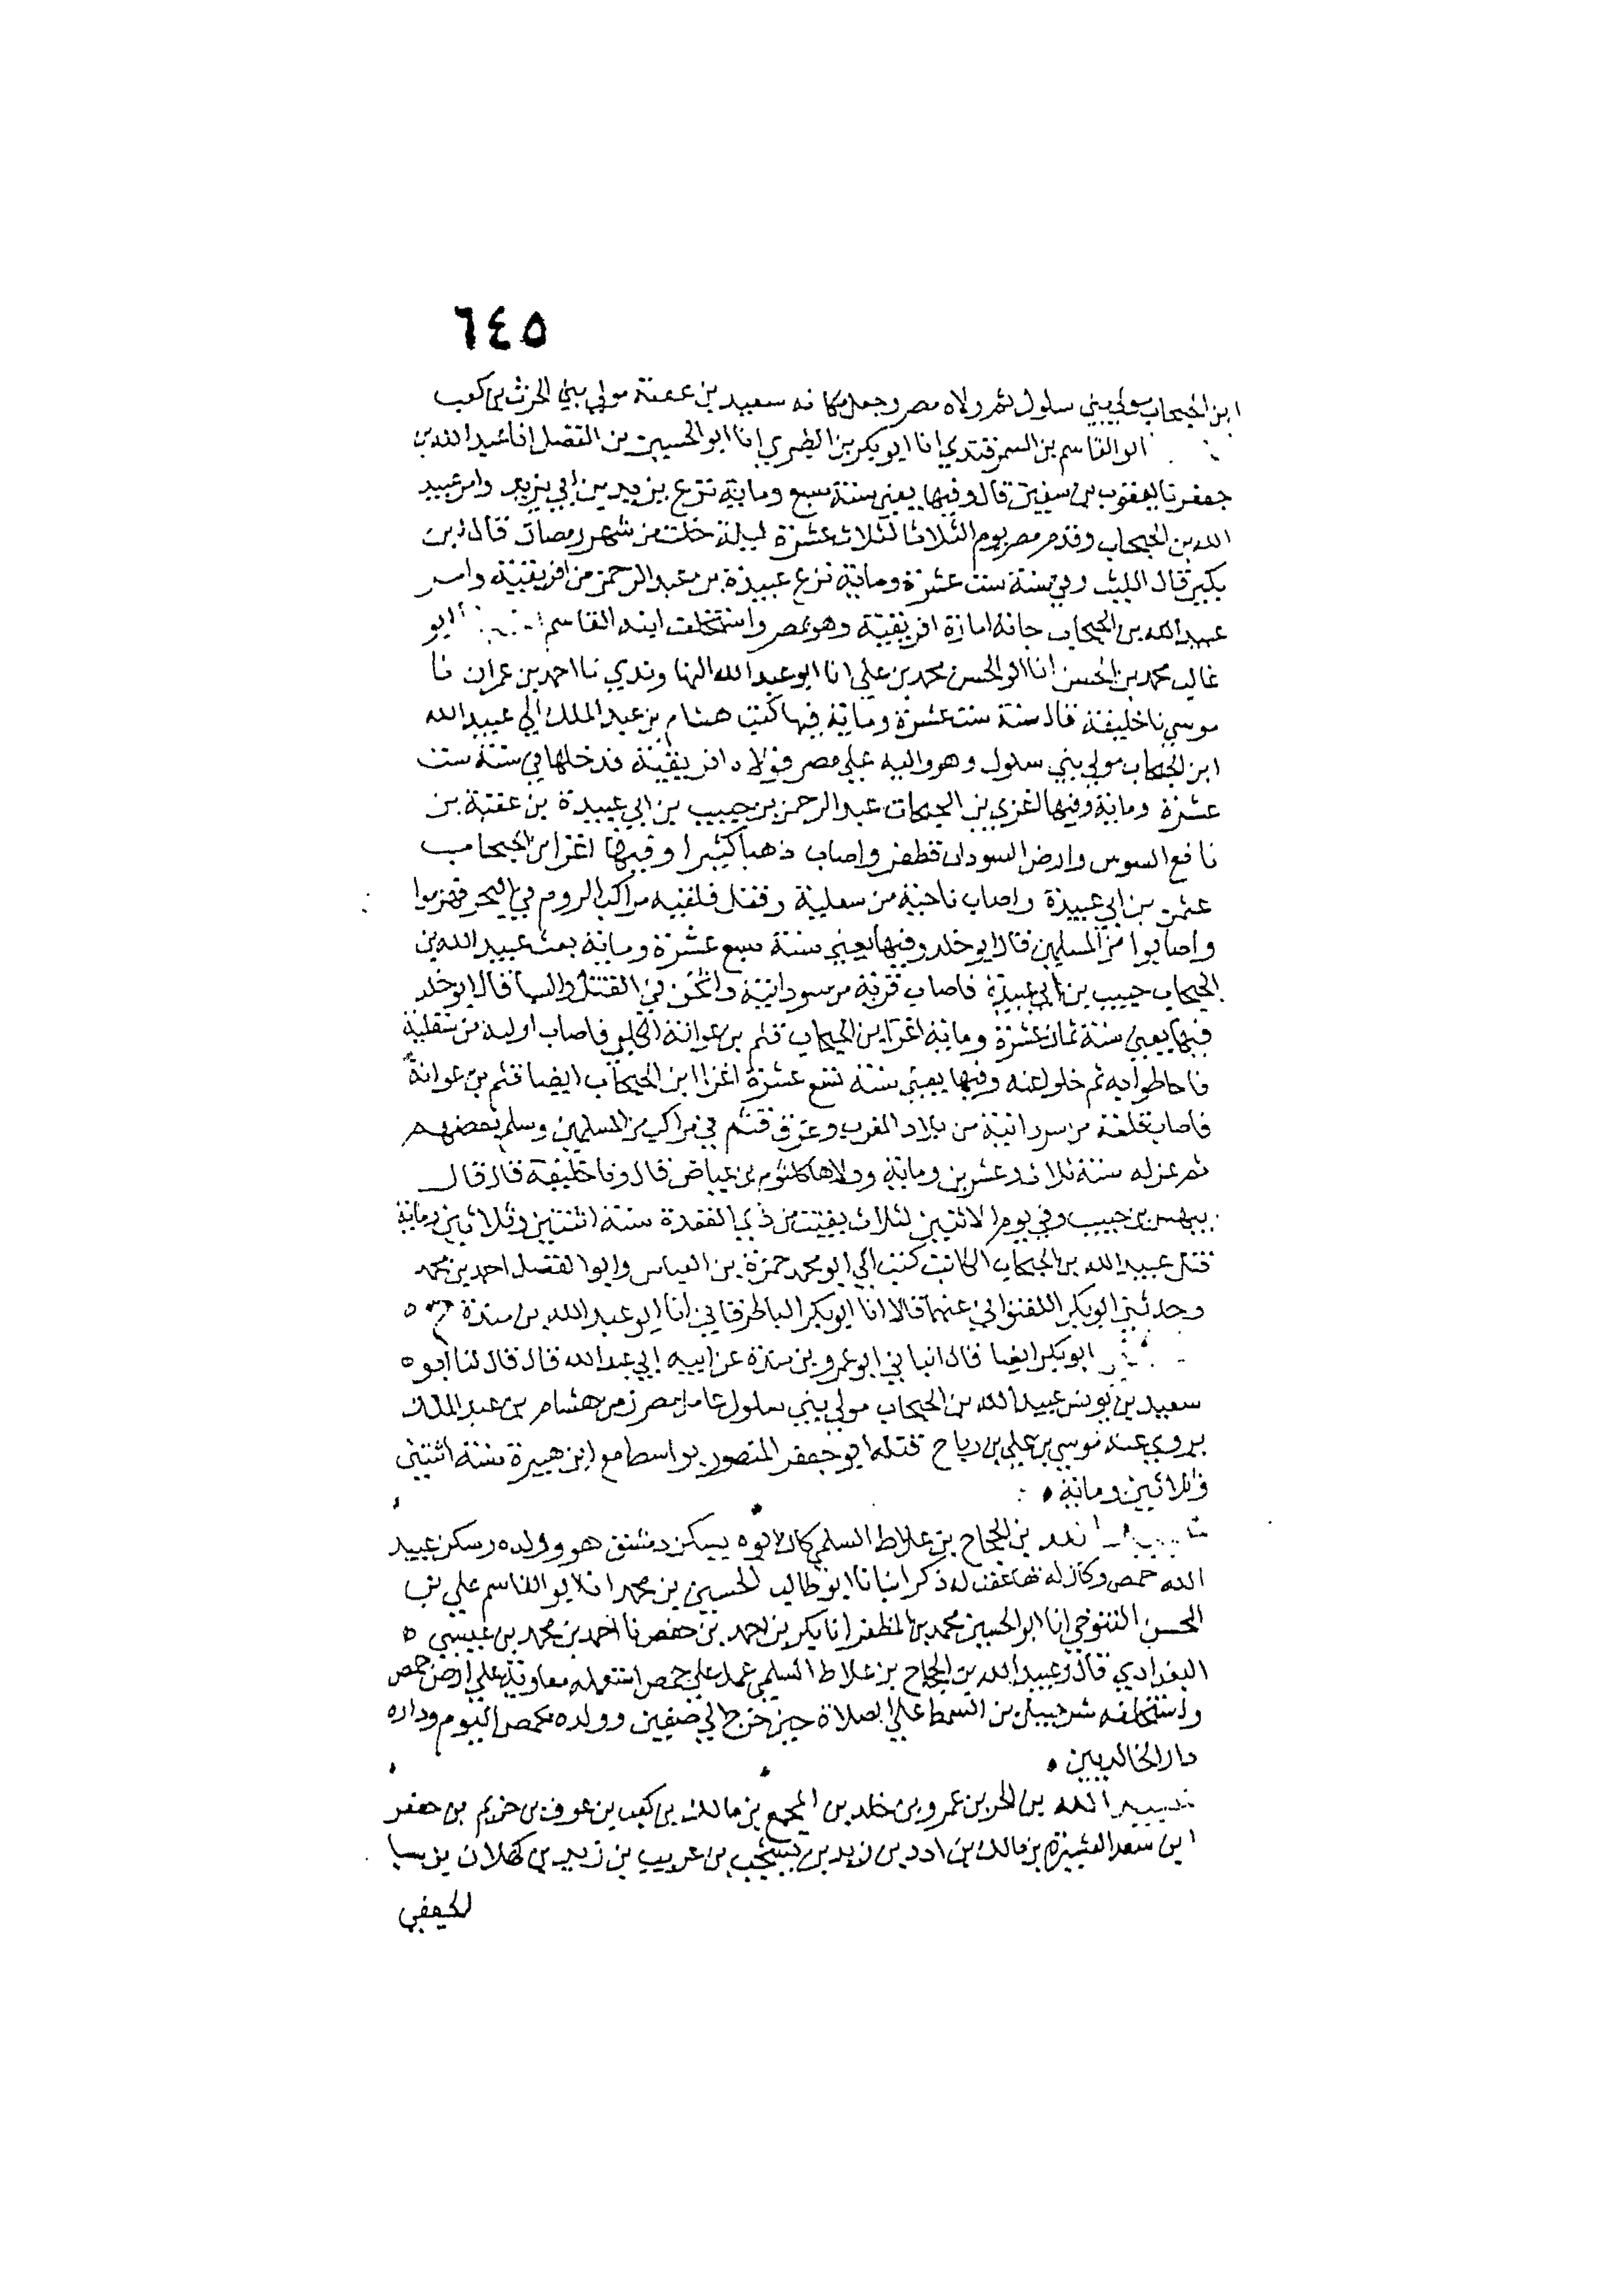 ٦٤٥
ابن الحبحاب مولى بني سلول ثم ولاه مصر وجعل مكانه سعيد بن عقبة مولى بني الحرث بن كعب
ابو القاسم بن السمرقندي انا ابو بكر بن الطبري انا ابو الحسين بن الفضل انا عبد الله بن
جعفر نا يعقوب بن سفين قال وفيها يعني سنة سبع وماية نزع يزيد بن ابي يزيد وامر عبيد
الله بن الحبحاب وقدم مصر يوم الثلاثا لثلاث عشرة ليلة خلت من شهر رمضان قال ابن
بكير قال الليث وفي سنة ست عشرة وماية نزع عبيدة بن عبد الرحمن من افريقية وامر
عبيد الله بن الحبحاب جاته امارة افريقية وهو بمصر واستخلف ابنه القاسم ابو
غالب محمد بن الحسن انا ابو الحسن محمد بن علي انا ابو عبد الله النهاوندي نا احمد بن عمران نا
موسى نا خليفة قال سنة ست عشرة وماية فيها كتب هشام بن عبد الملك الى عبيد الله
ابن الحبحاب مولى بني سلول وهو واليه على مصر فولاه افريقية فدخلها في سنة ست
عشرة وماية وفيها اغزى بن الحبحاب عبد الرحمن بن حبيب بن ابي عبيدة بن عقبة بن
نافع السوس وارض السودان فظفر واصاب ذهبا كثيرا وفيها اغزا بن الحبحاب
عثمن بن ابي عبيدة واصاب ناحية من سقلية وقفل فلقيه مراكب الروم في البحر فهزموا
واصابوا من المسلمين قال ابو خلد وفيها يعني سنة سبع عشرة وماية بعث عبيد الله بن
الحبحاب حبيب بن ابي عبيدة فاصاب قرية من سودانية واثخن في القتل والسبا قال ابو خلد
فيها يعني سنة ثمان عشرة وماية اغزا بن الحبحاب قثم بن عوانة الكلبي فاصاب اوليه من سقلية
فاحاطوا به ثم خلوا عنه وفيها يعني سنة تسع عشرة اغزا ابن الحبحاب ايضا قثم بن عوانة
فاصاب قلعة من سردانية من بلاد المغرب وغرق قثم في مراكب من المسلمين وسلم بعضهم
ثم عزله سنة ثلاث وعشرين وماية وولاها كلثوم بن عياض قال ونا خليفة قال قال
بيهس بن حبيب وفي يوم الاثنين لثلاث بقيت من ذي القعدة سنة اثنتين وثلاثين وماية
قتل عبيد الله بن الحبحاب الكاتب كتب الي ابو محمد حمزة بن العباس وابو الفضل احمد بن محمد
وحدثني ابو بكر اللفتواني عنهما قالا انا ابو بكر الباطرقاني انا ابو عبد الله بن مندة ح ٥
ابو بكر ايضا قال انباني ابو عمرو بن مندة عن ابيه ابي عبد الله قال قال لنا ابو ٥
سعيد بن يونس عبيد الله بن الحبحاب مولى بني سلول عامل مصر زمن هشام بن عبد الملك
يروي عنه موسى بن علي بن رباح قتله ابو جعفر المنصور بواسط مع ابن هبيرة سنة اثنتين
وثلاثين وماية
عبيد الله بن الحجاج بن علاط السلمي كان ابوه يسكن دمشق هو وولده وسكن عبيد
الله حمص وكان له بها عقب له ذكر انبانا ابو طالب الحسين بن محمد انا ابو القاسم علي بن
المحسن التنوخي انا ابو الحسين محمد بن المظفر انا بكر بن احمد بن حفص نا احمد بن محمد بن عيسى ٥
البغدادي قال وعبيد الله بن الحجاج بن علاط السلمي عمل على حمص استعمله معاوية على ارض حمص
واستخلفه شرحبيل بن السمط على الصلاة حين خرج الى صفين وولده بحمص اليوم وداره
دار الخالديين
عبيد الله بن الحر بن عمرو بن خلد بن المجمع بن مالك بن كعب بن عوف بن حريم بن جعفر
ابن سعد العشيرة بن مالك بن ادد بن زيد بن يشجب بن عريب بن زيد بن كهلان بن سبا
الجعفي